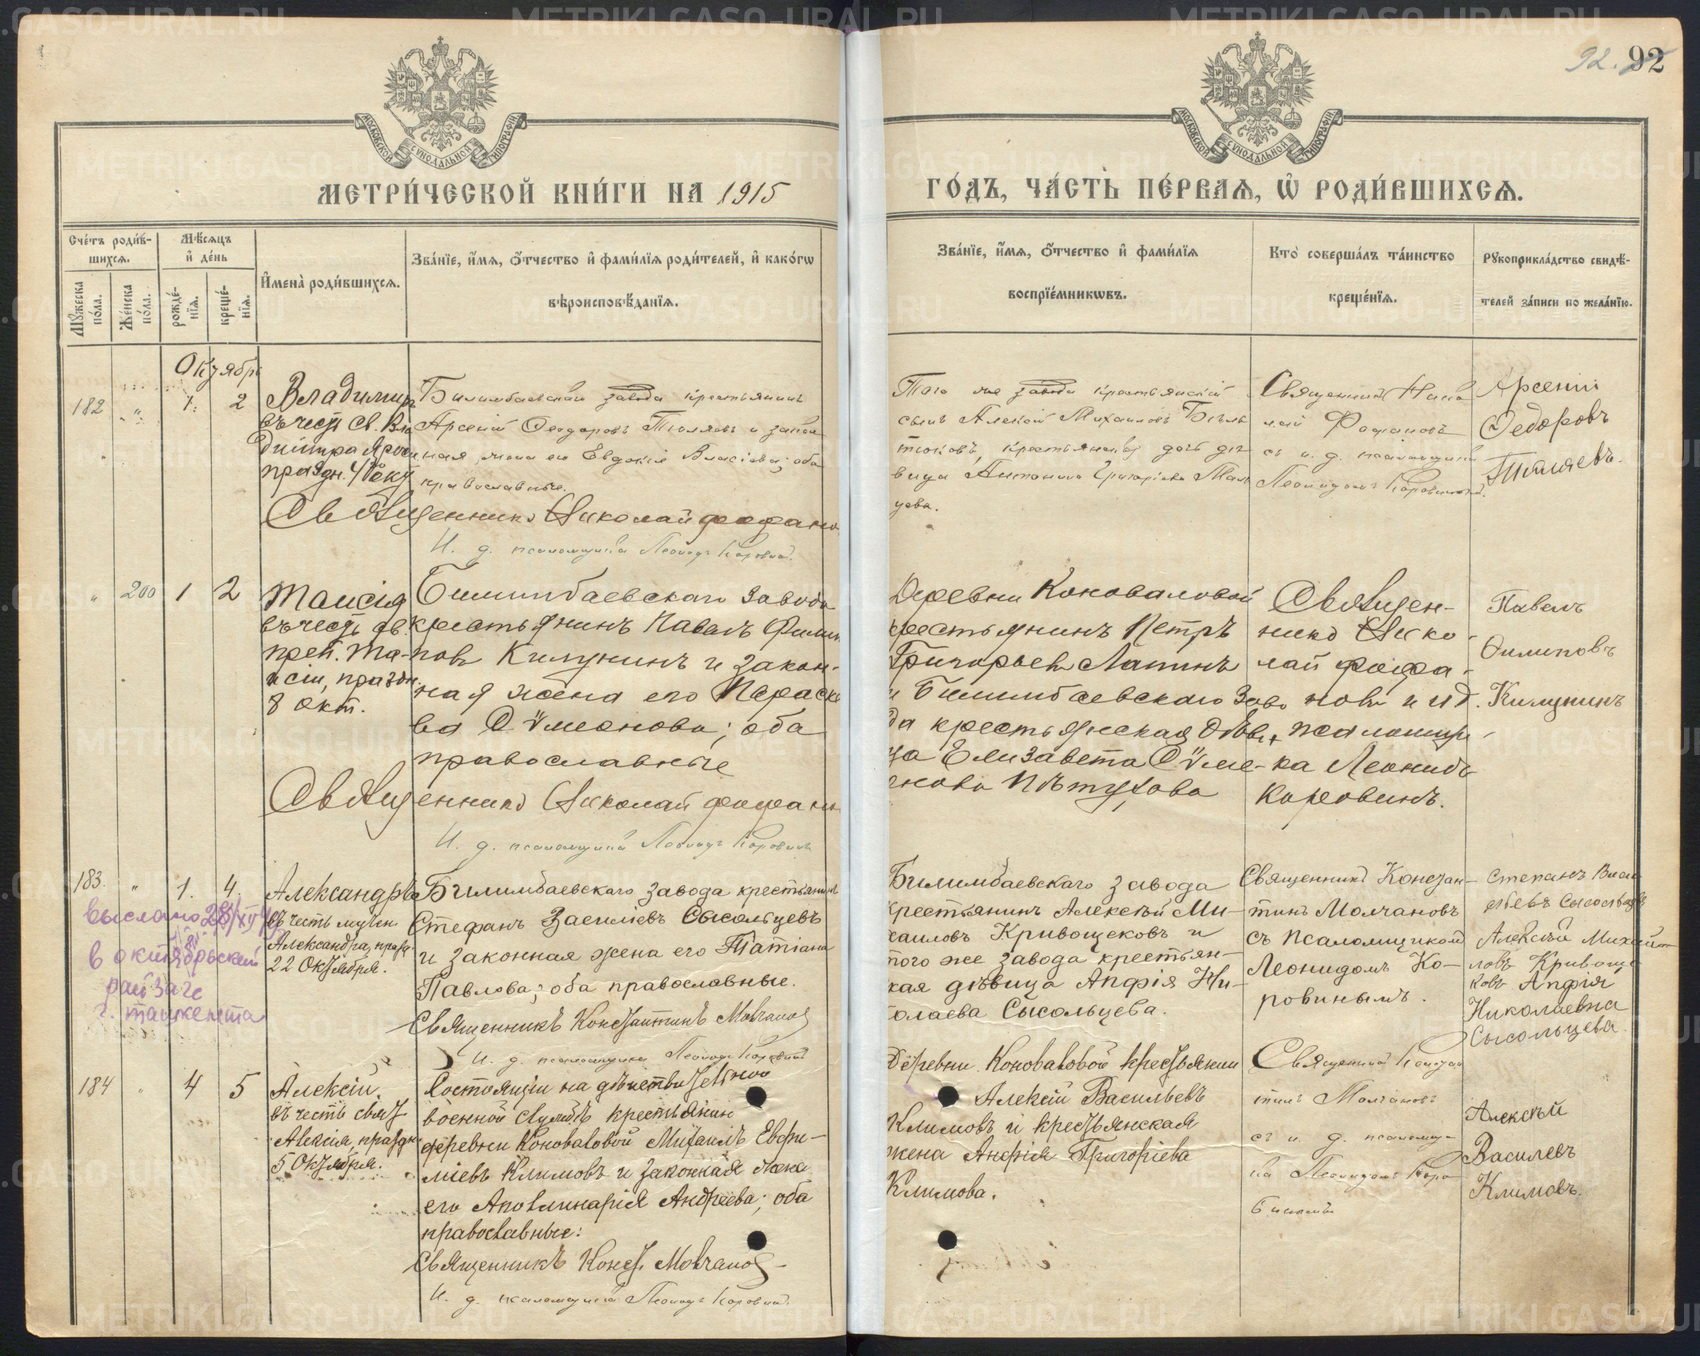 92. 92
МОСКОВСКОЙ СѴНОДАЛЬНОЙ ТИПОГРАФІИ
МОСКОВСКОЙ СѴНОДАЛЬНОЙ ТИПОГРАФІИ
МЕТРИ́ЧЕСКОЙ КНИ́ГИ НА 1915
ГО́ДЪ, ЧА́СТЬ ПЕ́РВАѦ, Ѡ҆ РОДИ́ВШИХСѦ.
Сче́тъ роди́в-
шихсѧ.
Мꙋ́жеска по́ла.
Же́нска по́ла.
Мѣ́сѧцъ
и҆ де́нь
рожде́нїѧ.
креще́нїѧ.
И҆мена̀ роди́вшихсѧ.
Зва́нїе, и҆́мѧ, ѻ҆́тчество и҆ фами́лїѧ роди́телей, и҆ како́гѡ
вѣроисповѣ́данїѧ.
Зва́нїе, и҆́мѧ, ѻ҆́тчество и҆ фами́лїѧ
воспрїе́мникѡвъ.
Кто̀ соверша́лъ та́инство
креще́нїѧ.
Рꙋкоприкла́дство свидѣ́-
телей за́писи по жела́нїю.
Октябрь
182 " 1. 2
Владимиръ
въ честь св. Вла
димира Яросл
праздн. 4 Окт
Билимбаевскаго завода крестьянинъ
Арсеній Ѳеодоровъ Тюляевъ и закон
ная жена его Евдокія Власіева; оба
православные.
Священникъ Николай Фофановъ
И. д. псаломщика Леонидъ Коровинъ.
Того же завода крестьянскій
сынъ Алексѣй Михаиловъ
крестьянская дочь дѣ
вица Антонина Григорьева Маль
цева.
Священникъ Нико
лай Фофановъ
съ и. д. псаломщика
Леонидомъ Коровинымъ.
Арсеній
Ѳедоровъ
Тюляевъ.
" 200 1 2
Таисія
въ честь св.
преп. Та-
исіи, праздн.
8 окт.
Билимбаевскаго завода
крестьянинъ Павелъ Филип
повъ Килунинъ и закон-
ная жена его Параске
ва Сѵмеонова; оба
православные
Священникъ Николай Фофановъ
И. д. псаломщика Леонидъ Коровинъ
Деревни Коноваловой
крестьянинъ Петръ
Григорьевъ Лапинъ
и Билимбаевскаго заво
да крестьянская дѣви
ца Елизавета Сѵме-
онова Пѣтухова
Священ-
никъ Нико-
лай Фофа-
новъ и и д.
псаломщи-
ка Леонидъ
Коровинъ.
Павелъ
Филиповъ
Килунинъ
183. " 1. 4.
Александръ
въ честь мучен
Александра, празд.
22 Октября.
выслано 28/XII
в октябрьский
рай загс
г. ташкента
Билимбаевскаго завода крестьянинъ
Стефанъ Василіевъ Сысольцевъ
и законная жена его Татіана
Павлова; оба православные.
Священникъ Константинъ Молчановъ
И. д. псаломщика Леонидъ Коровинъ
Билимбаевскаго завода
крестьянинъ Алексѣй Ми-
хаиловъ Кривощековъ и
того же завода крестьян-
ская дѣвица Анфія Ни-
колаева Сысольцева.
Священникъ Констан-
тинъ Молчановъ
съ псаломщикомъ
Леонидомъ Ко-
ровинымъ.
Степанъ Васи
льевъ Сысольцевъ
Алексѣй Михай
ловъ Кривоще
ковъ Анфія
Николаевна
Сысольцева.
184 " 4 5
Алексій.
въ честь свят
Алексія, праздн
5 Октября.
Состоящій на дѣйствительной
военной службѣ крестьянинъ
деревни Коноваловой Михаилъ Евфи-
міевъ Климовъ и законная жена
его Аполинарія Андреева; оба
православные:
Священникъ Конст. Молчановъ
И. д. псаломщика Леонидъ Коровинъ.
Деревни Коноваловой крестьянинъ
Алексій Васильевъ
Климовъ и крестьянская
жена Анфія Григоріева
Климова.
Священникъ Констан
тинъ Молчановъ
съ и. д. псаломщи-
ка Леонидомъ Коро
винымъ
Алексѣй
Василевъ
Климовъ.
METRIKI.GASO-URAL.RU